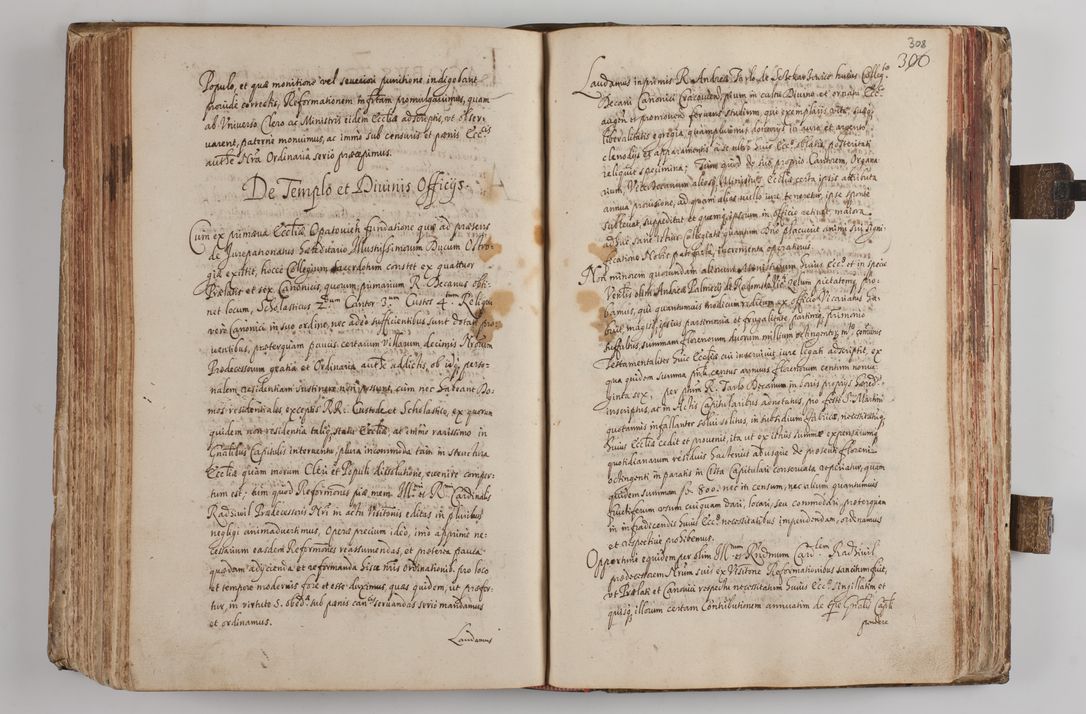 Populo, et quæ monitione vel seueriori punitione indigebant
prouide correctis, Reformationem infram promulgauimus, quam
ab Vniuerso Clero ac Ministris eidem Eccliæ adscriptis, vt obser-
uarent, paterne monuimus, ac immo sub censuris et pœnis Eccis
aucte Nra Ordinaria serio præcepimus.
De Templo et Diuinis Officijs.
Cum ex primæua Eccliæ Opatouieñ fundatione quæ ad præsens
de Jurepatronatus hæreditario Illustrissimorum Ducum Ostro-
giæ existit, hocce Collegium Sacerdotum constet ex quattuor
Prælatis et sex Canonicis, quorum primarium R. Decanus obti-
net locum, Scholasticus 2dum Cantor 3um Custos 4tum Reliqui
vero Canonici in suo ordine, nec adeo sufficientibus sunt dotati pro-
uentibus, præterquam paruis certarum Villarum decimis Nrorum
Prædecessorum gratia et Ordinaria aucte addictis, ob idq perso-
nalem residentiam sustinere non possunt, cum nec habeant Do-
mos residentiales exceptis RR. Custode et Scholastico, ex quorum
quidem non residentia talis status Eccliæ, at immo rarissimo in
Gnalibus Capitulis interuentu, plura incommoda tam in structura
Eccliæ quam morum Cleri et Populi dissolutione euenire comper-
tum est: tum quod Reformones piæ mem. Illmi et Rmi Cardinalis
Radziwil Prædecessoris Nri in actu Visitonis editas in pluribus
negligi animaduertimus, Operæ precium ideo, imo apprime ne-
cessarium easdem Reformones reassumendas, et præterea pauca
quædam adijcienda et reformanda hisce nris Ordinationib. pro loco
et tempore modernis fore et esse duximus, quas quidem, vt præfer-
tur, in virtute S. obedæ sub pœnis canis seruandas serio mandamus
et ordinamus.
Laudamus
308
306
Laudamus inprimis R. Andreæ Tarlo de Szczekarzowice huius Collegtæ
Decani Canonici Cracouien, pium in cultu Diuino et ornatu Eccæ
augen et promouen feruens studium, qui exemplaris vitæ suæq
liberalitatis egregia quamplurimis donarijs in auro et argento
clenodijs et apparamentis a se vltro huic Eccæ oblatis, posteritati
reliquit specimina: Tum quod de suo proprio Cantorem, Organa-
rium, Vice Decanum aliosq Ministros Eccliæ certa ipsis attributa
annua prouisione, ad quam alias nullo iure teneretur, ipse sponte
subleuat, suppeditat et quemq ipsorum in officio retinet, maiora
adhuc sane istius Collegiatæ quantum Dno placuerit animi sui signi-
ficatione Nobis patefacta, incrementa operaturus.
Non minorem quorundam aliorum Ministrorum huius Eccæ et in specie
Venlis olim Andreæ Palmerij de Radomska Vicrij Zelum pietatemq pro-
bamus, qui quantumuis modicum redituum ex officio Vicariatus ha-
buit magis ipsius parsimonia et frugalitate partimq patrimonio
suffultus, summam florenorum duorum millium octingentor. mtæ comunis
Testamentaliter huic Eccliæ cui inseruiuit iure legati adscripsit, ex
qua quidem summa pnti census annuus florenorum centum nona-
ginta sex, per præfatum R. Tarlo Decanum in bonis proprijs hæred.
inscriptus, ac in Actis Capitularibus adnotatus, pro festo S. Martini
quotannis infallanter solui solitus, in subsidium fabricæ, necessitatisq
huius Eccliæ cedit et prouenit, ita ut ex istius summæ expensarumq
quotidianarum residuis hactenus adusque de præsenti floreni
octingenti in paratis in Cista Capitulari conseruata reperiantur, quam
quidem summam fl. 800. nec iti censum, nec alium quantumuis
fructiferum vsum cuiquam dari, locari, seu commodari præterquam
in infradicendis huius Eccæ necessitatibus impendendam, ordinamus
et respectiue prohibemus.
Opportune equidem per olim Illmum et Rndmum Cardlem Radziuil
prædecessorem Nrum suis ex Visitone Reformationibus sancitum fuit,
vt Prælati et Canonici respectu necessitatum huius Eccæ singillatim et
quisq illorum certam Contributionem annuatim de qlit Gnalis Capli
pendere